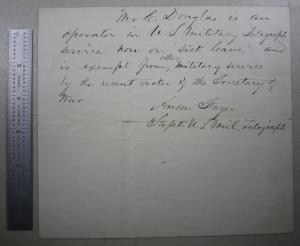 Mr C. Douglas is an
operator in U S Military Telegraph
service, now on "sick leave" and
is exempt from other military service
by the recent order of the Secretary of
War
Anson Stager
Supt. U S Mil. Telegraph